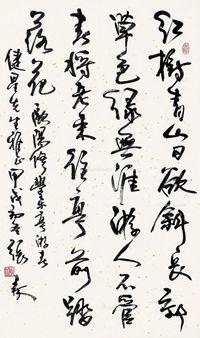 紅樹青山日欲斜長郊
草色綠無涯游人不管
春將老來往亭前踏
落花 歐陽修豐樂亭游春
健星先生雅正甲戌張森